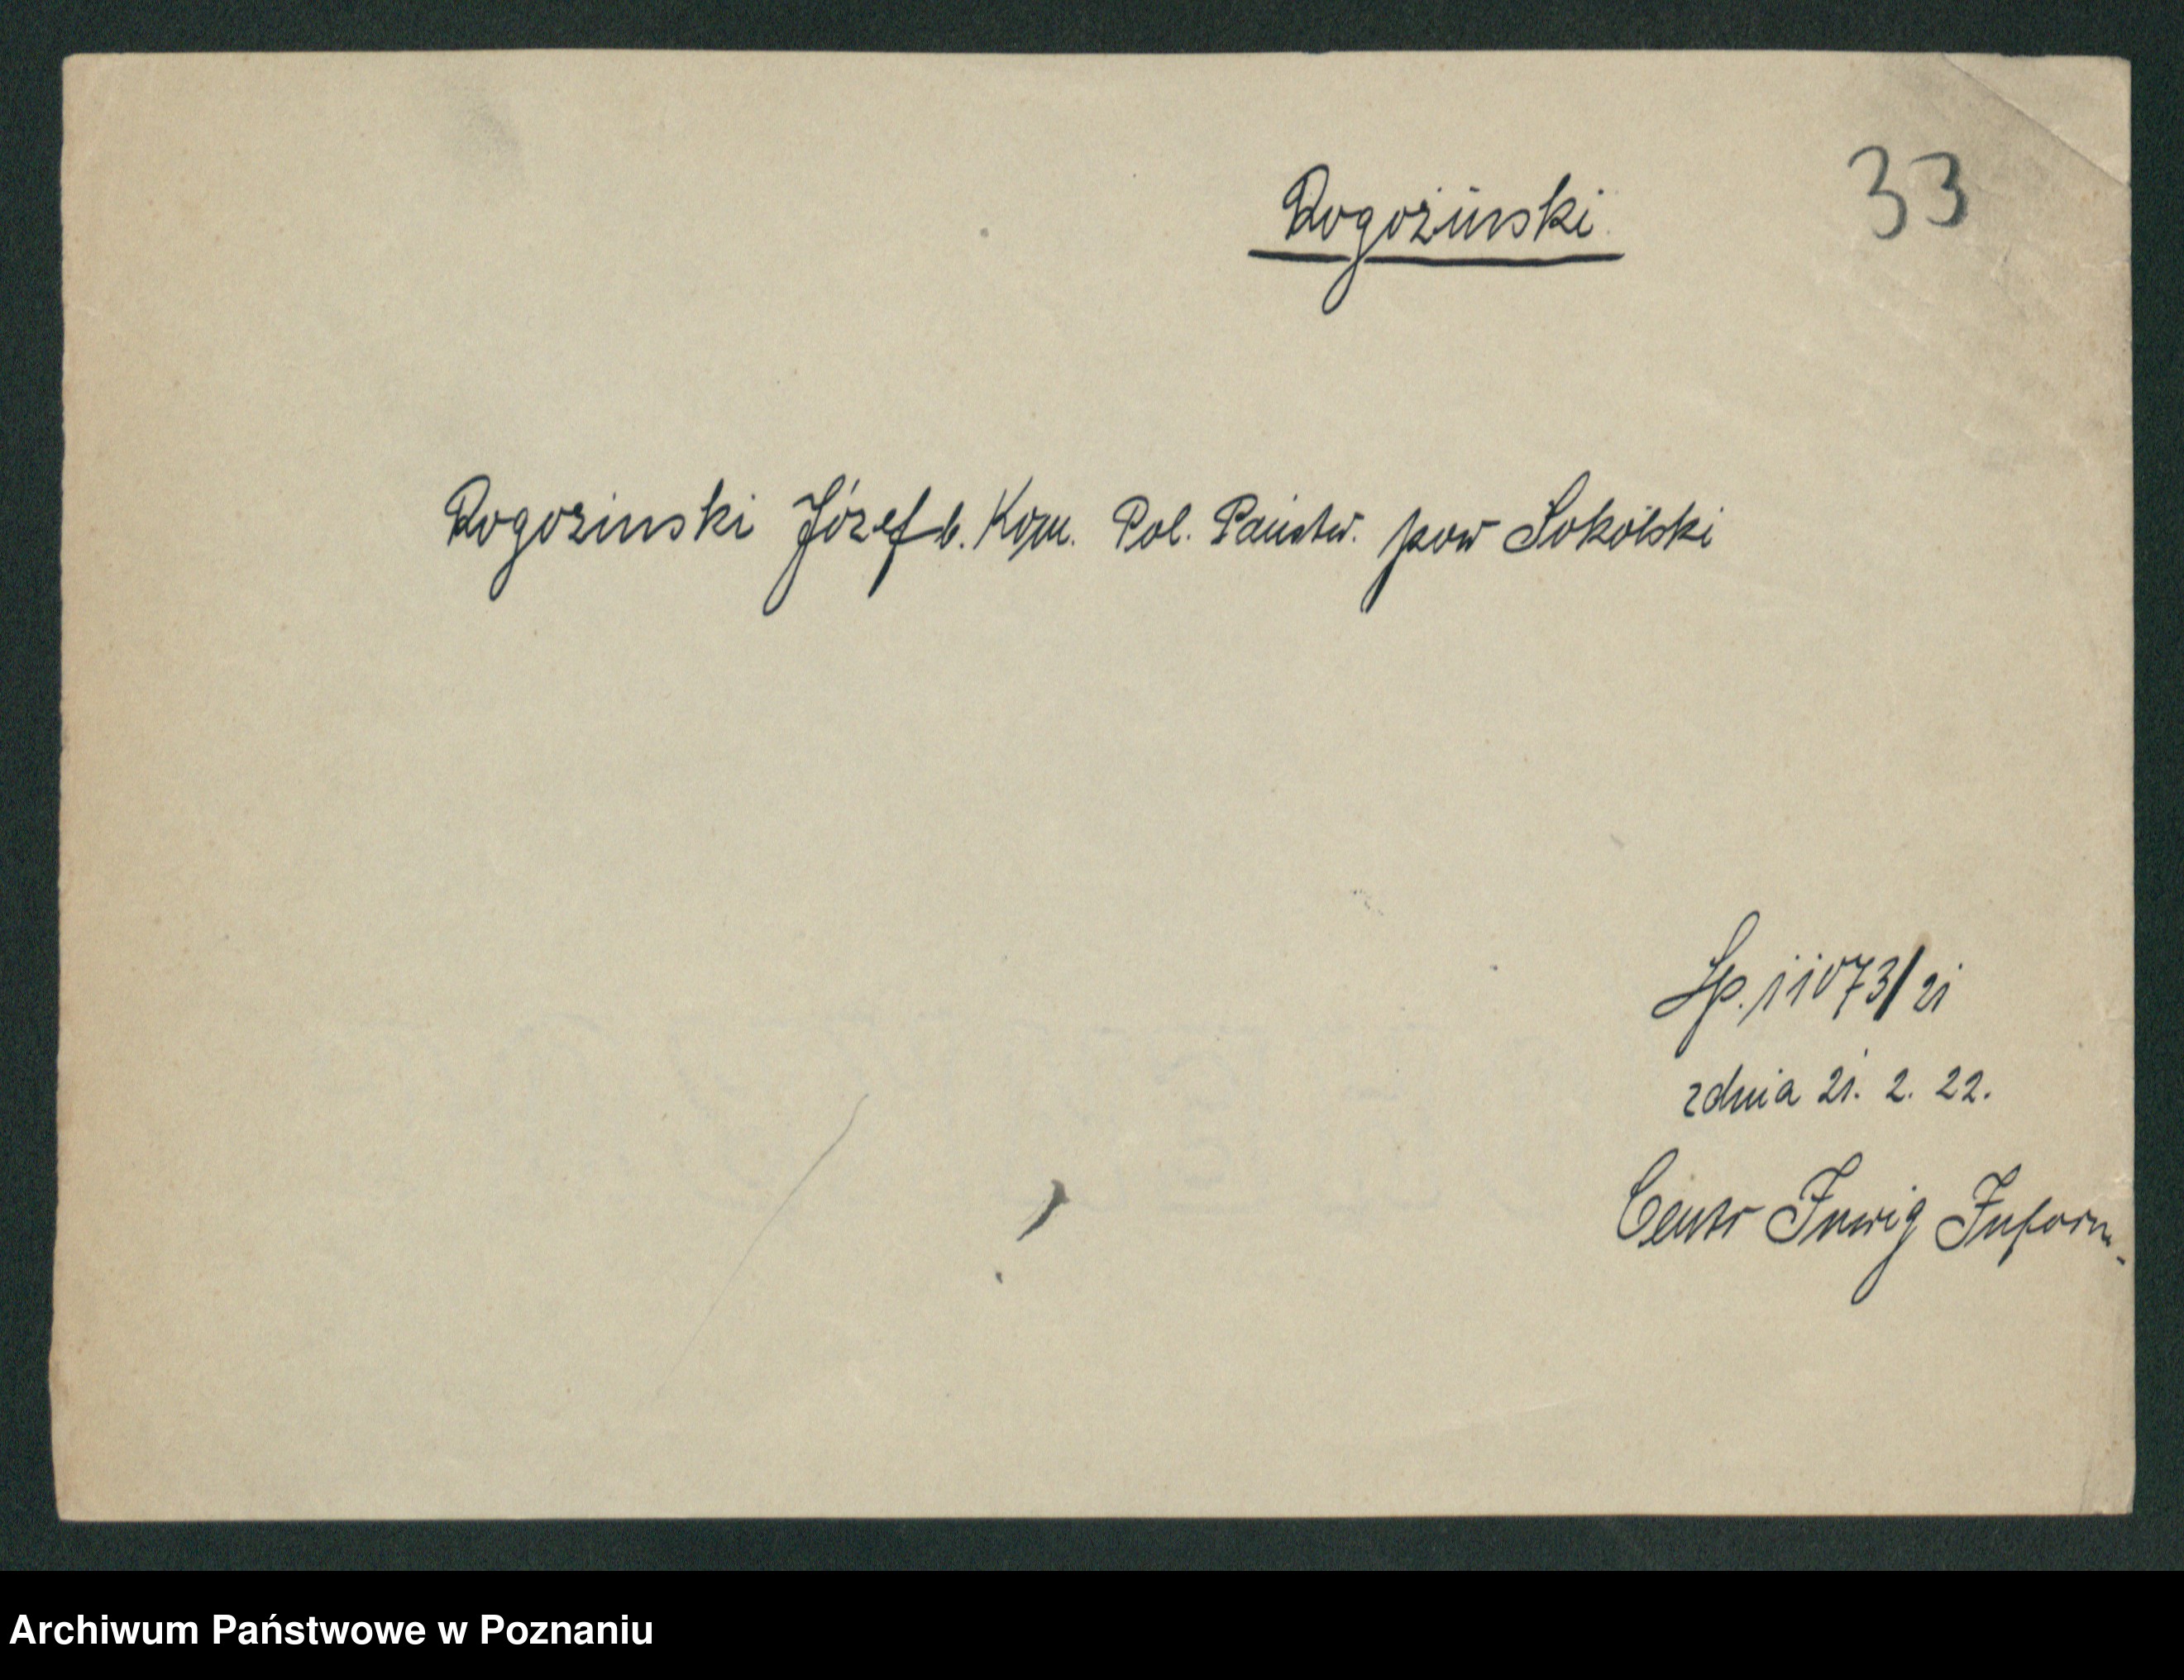 33
Rogoziński
Rogozinski Józef b. Kom. Pol. Państw. pow Sokólski
Lp. 11073/21
zdnia 21. 2. 22.
Centr Inwig Inform.
Archiwum Państwowe w Poznaniu